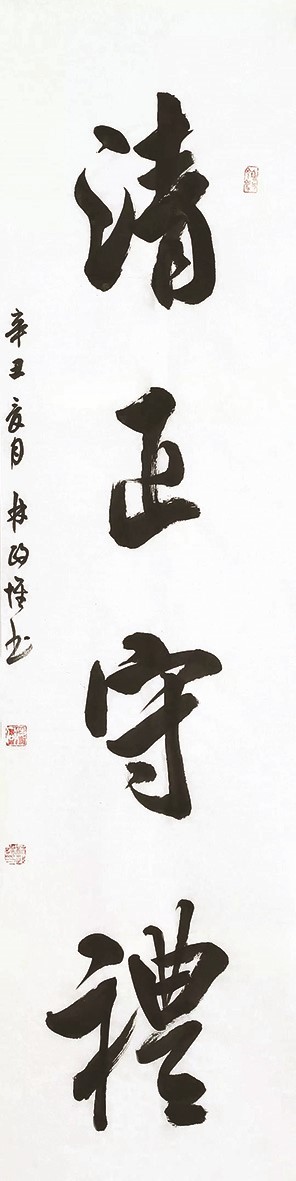 清正守禮
辛丑亥月林
書